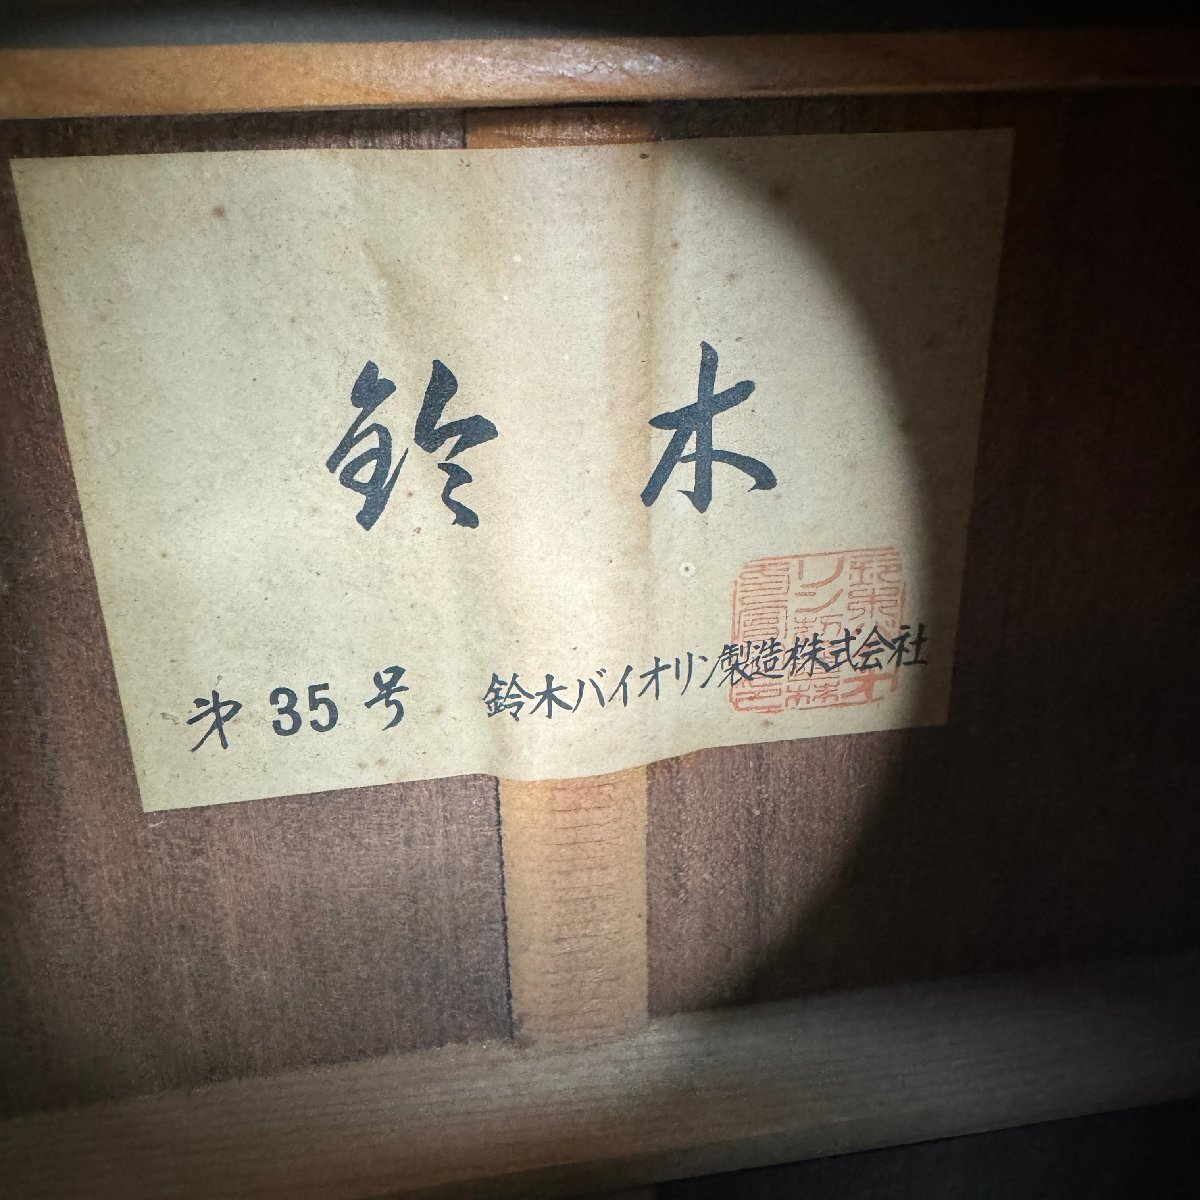 鈴木
第35号 鈴木バイオリン製造株式会社